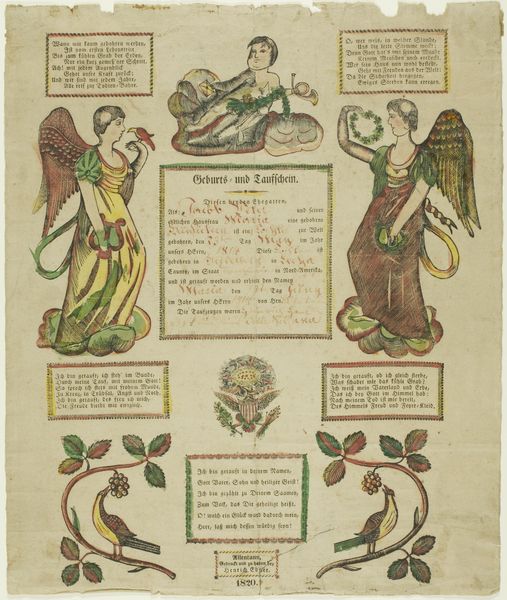 Wann wir kaum gebohren werden,
Ist vom ersten Lebenstritt
Bis zum kühlen Grab der Erden,
Nur ein kurz gemeß'ner Schritt.
Ach! mit jedem Augenblick
Gehet unsre Kraft zurück;
Und wir sind mit jedem Jahre,
Alle reif zur Todten-Bahre.
O, wer weis, in welcher Stunde,
Uns die letzte Stimme weckt;
Denn Gott hat's mit seinem Munde
Keinem Menschen noch entdeckt.
Wer sein Haus nun wohl bestellt,
Geht mit Freuden aus der Welt;
Da die Sicherheit hergegen,
Ewiges Sterben kann erregen.
Geburts- und Taufschein.
Diesen beyden Ehegatten,
Als: Jacob und seiner
ehlichen Hausfrau Maria eine gebohrne
ist ein zur Welt
gebohren, den Tag May im Jahr
unsers HErrn, Diese ist
gebohren in in
Caunty, im Staat in Nord-Amerika;
und ist getauft worden und erhielt den Namen
Maria den Tag
im Jahr unsers HErrn von Hrn.
Die Taufzeugen waren
Ich bin getauft; ich steh' im Bunde,
Durch meine Tauf, mit meinem Gott!
So sprech ich stets mit frohem Munde,
In Kreuz, in Trübsal, Angst und Noth.
Ich bin getauft, des freu ich mich,
Die Freude bleibt mir ewiglich.
Ich bin getauft, ob ich gleich sterbe,
Was schadet mir das kühle Grab?
Ich weiß mein Vaterland und Erbe,
Das ich bey Gott im Himmel hab:
Nach meinem Tod ist mir bereit,
Des Himmels Freud und Feyer-Kleid.
Ich bin getauft in deinem Namen,
Gott Vater, Sohn und heiliger Geist!
Ich bin gezählt zu Deinem Saamen,
Zum Volk, das Dir geheiligt heißt.
O! welch ein Glück ward dadurch mein,
Herr, laß mich dessen würdig seyn!
Allentaun,
Gedruckt und zu haben bey
Henrich Ebner.
1820.